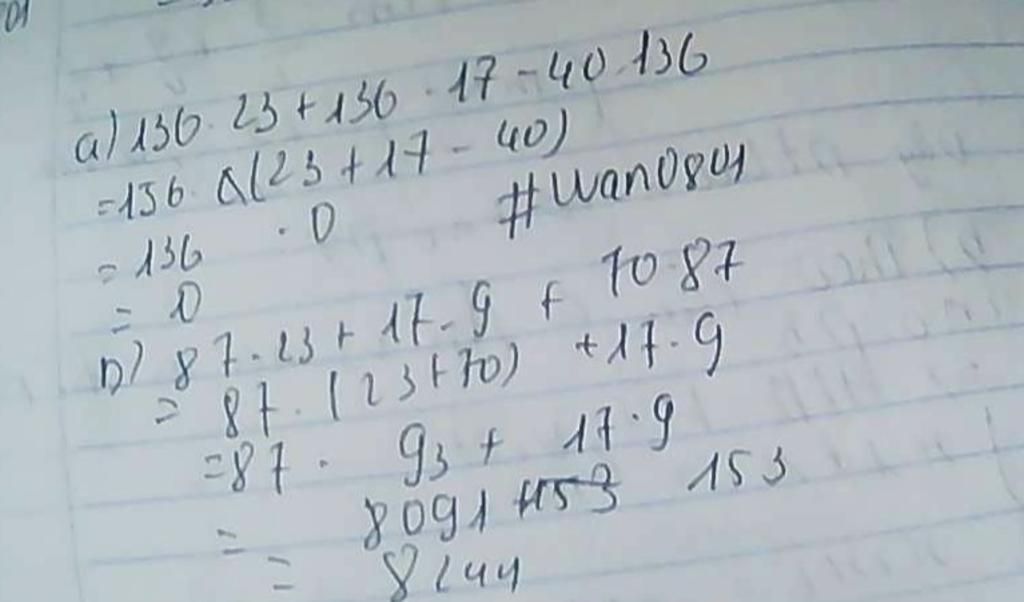 01
a) 136. 23 + 136 . 17 - 40 . 136
= 136 . (23 + 17 - 40)
= 136 . 0 #wan0801
= 0
b) 87 . 23 + 17 . 9 + 70 . 87
= 87 . (23 + 70) + 17 . 9
= 87 . 93 + 17 . 9
= 8091 + 153 153
= 8244